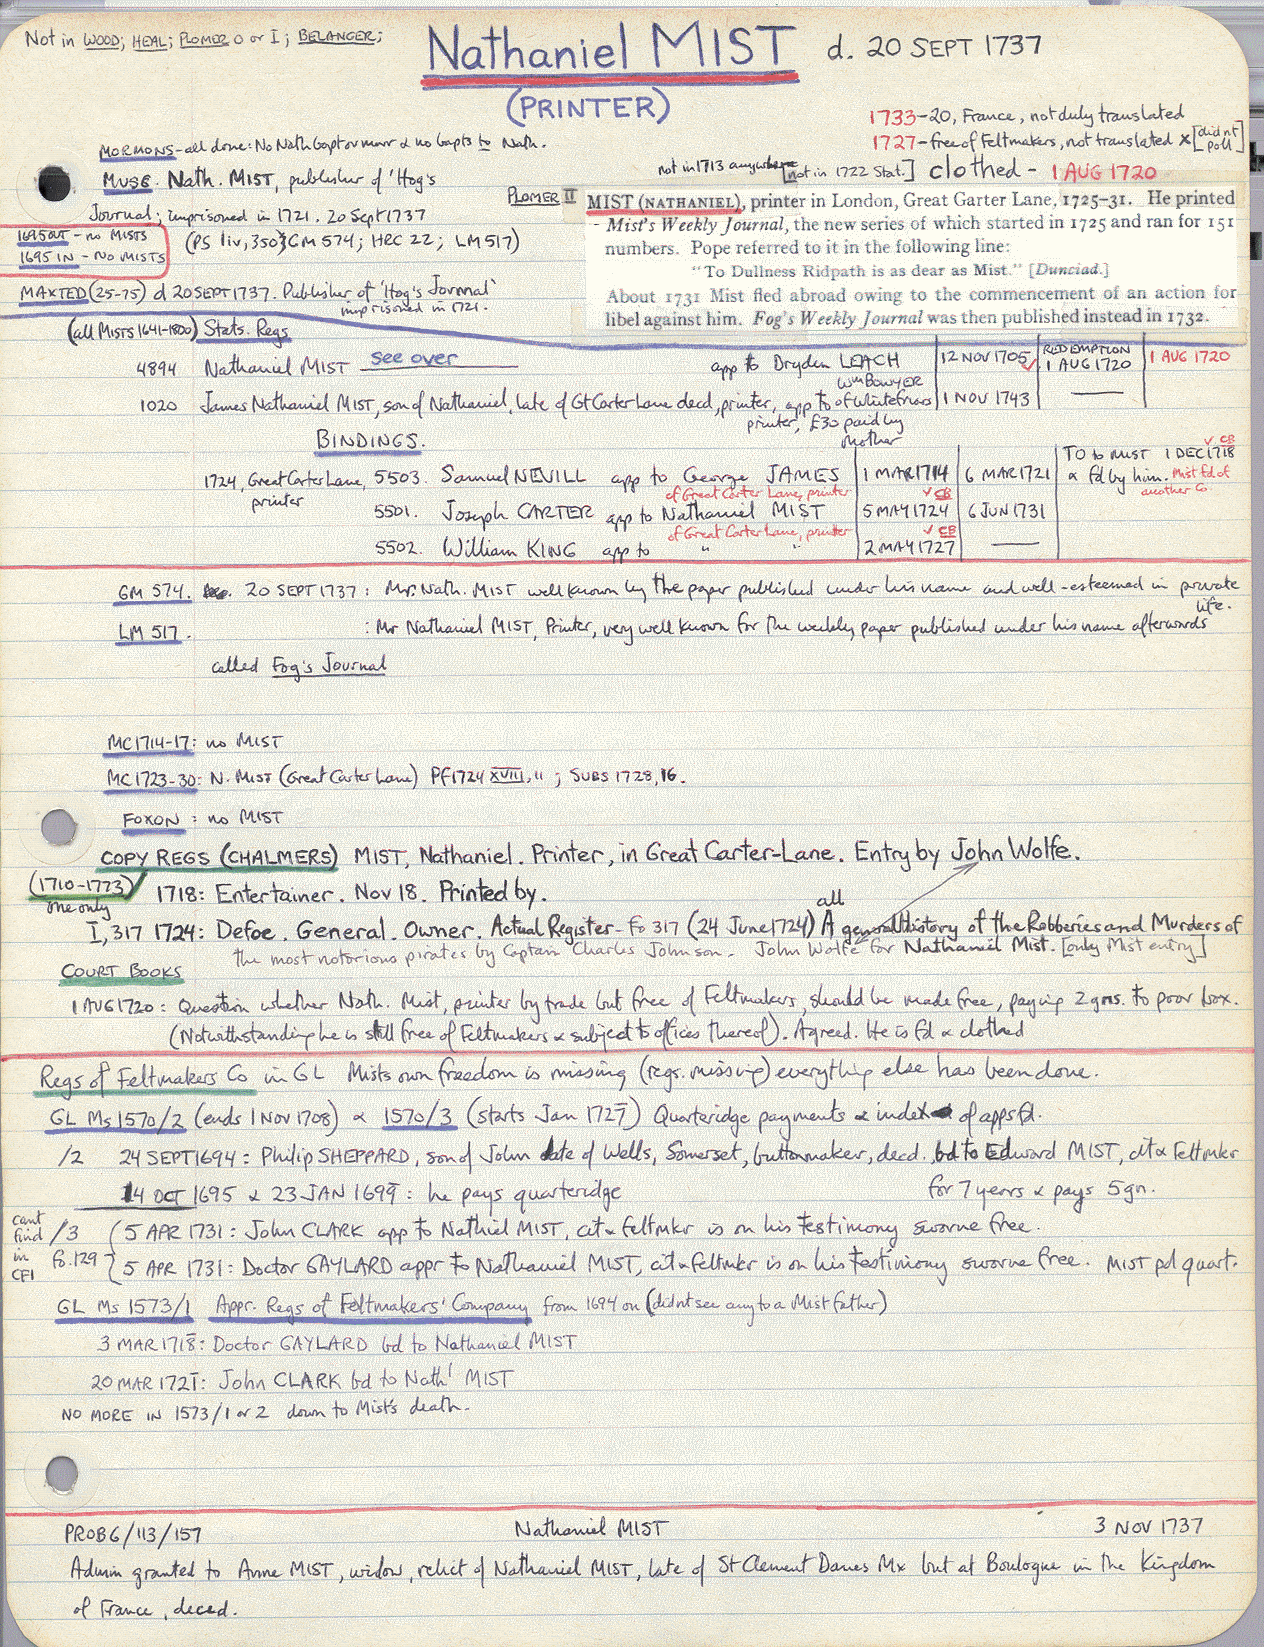 Not in WOOD; HEAL; PLOMER O or I; BELANGER;
Nathaniel MIST d. 20 SEPT 1737
(PRINTER)
1733-20, France, not duly translated
1727-free of Feltmakers, not translated x [didn't poll]
MORMONS-all done: No Nath bapt or marr & no bapts to Nath.
not in 1713 anywhere [not in 1722 Stat.] clothed - 1 AUG 1720
MUSG. Nath. MIST, publisher of 'Hog's
Journal; imprisoned in 1721. 20 Sept 1737
(PS liv, 350; GM 574; HRC 22; LM 517)
1695 OUT - no MISTS
1695 IN - NO MISTS
MAXTED (25-75) d 20 SEPT 1737. Publisher of 'Hog's Journal'
imprisoned in 1721.
PLOMER II MIST (NATHANIEL), printer in London, Great Garter Lane, 1725-31. He printed
Mist's Weekly Journal, the new series of which started in 1725 and ran for 151
numbers. Pope referred to it in the following line:
"To Dullness Ridpath is as dear as Mist." [Dunciad.]
About 1731 Mist fled abroad owing to the commencement of an action for
libel against him. Fog's Weekly Journal was then published instead in 1732.
(all MISTS 1641-1800) Stats. Regs
4894 Nathaniel MIST see over app to Dryden LEACH 12 NOV 1705 REDEMPTION 1 AUG 1720 1 AUG 1720
1020 James Nathaniel MIST, son of Nathaniel, late of Gt Carter Lane decd, printer, app to Wm BOWYER of Whitefriars 1 NOV 1743 —
printer, £30 paid by
Mother
BINDINGS.
1724, Great Carter Lane, printer 5503. Samuel NEVILL app to George JAMES 1 MAR 1714 6 MAR 1721 TO to MIST 1 DEC 1718 ✓ CB
& fd by him. Mist fd of another Co
of Great Carter Lane, printer ✓ CB
5501. Joseph CARTER app to Nathaniel MIST 5 MAY 1724 6 JUN 1731
of Great Carter Lane, printer ✓ CB
5502. William KING app to " " 2 MAY 1727 —
GM 574. 20 SEPT 1737: Mr. Nath. MIST well known by the paper published under his name and well-esteemed in private
life.
LM 517. : Mr Nathaniel MIST, Printer, very well known for the weekly paper published under his name afterwards
called Fog's Journal
MC 1714-17: no MIST
MC 1723-30: N. MIST (Great Carter Lane) PF 1724 XVIII, 11; SUBS 1728, 16.
FOXON: no MIST
COPY REGS (CHALMERS) MIST, Nathaniel. Printer, in Great Carter-Lane. Entry by John Wolfe.
(1710-1773) 1718: Entertainer. Nov 18. Printed by.
one only
all
I, 317 1724: Defoe. General. Owner. Actual Register - fo 317 (24 June 1724) A general History of the Robberies and Murders of
the most notorious pirates by Captain Charles Johnson. John Wolfe for Nathaniel Mist. [only Mist entry]
COURT BOOKS
1 AUG 1720: Question whether Nath. Mist, printer by trade but free of Feltmakers, should be made free, paying 2 gns. to poor box.
(Notwithstanding he is still free of Feltmakers & subject to offices thereof). Agreed. He is fd & clothed
Regs of Feltmakers Co in GL Mists own freedom is missing (regs. missing) everything else has been done.
GL Ms 1570/2 (ends 1 Nov 1708) & 1570/3 (starts Jan 1727) Quarteridge payments & index of apps fd.
/2 24 SEPT 1694: Philip SHEPPARD, son of John late of Wells, Somerset, buttonmaker, decd. bd to Edward MIST, cit & feltmkr
14 OCT 1695 & 23 JAN 1699: he pays quarteridge for 7 years & pays 5 gn.
cant find in CFI
/3 fo. 129
5 APR 1731: John CLARK app to Nathiel MIST, cit & feltmkr is on his testimony sworne free.
5 APR 1731: Doctor GAYLARD appr to Nathaniel MIST, cit & feltmkr is on his testimony sworne free. MIST pd quart.
GL Ms 1573/1 Appr. Regs of Feltmakers' Company from 1694 on (didnt see any to a Mist father)
3 MAR 1718: Doctor GAYLARD bd to Nathaniel MIST
20 MAR 1721: John CLARK bd to Nathl MIST
NO MORE IN 1573/1 or 2 down to Mist's death.
PROB 6/113/157 Nathaniel MIST 3 NOV 1737
Admin granted to Anne MIST, widow, relict of Nathaniel MIST, late of St Clement Danes Mx but at Boulogne in the Kingdom
of France, deced.